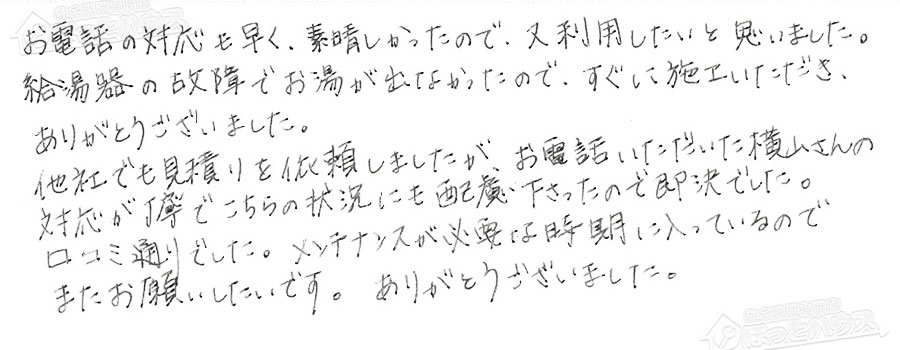 お電話の対応も早く、素晴しかったので、又利用したいと思いました。
給湯器の故障でお湯が出なかったので、すぐに施工いただき、
ありがとうございました。
他社でも見積りを依頼しましたが、お電話いただいた横山さんの
対応が丁寧でこちらの状況にも配慮下さったので即決でした。
口コミ通りでした。メンテナンスが必要な時期に入っているので
またお願いしたいです。ありがとうございました。
住宅設備専門店
ほっとハウス